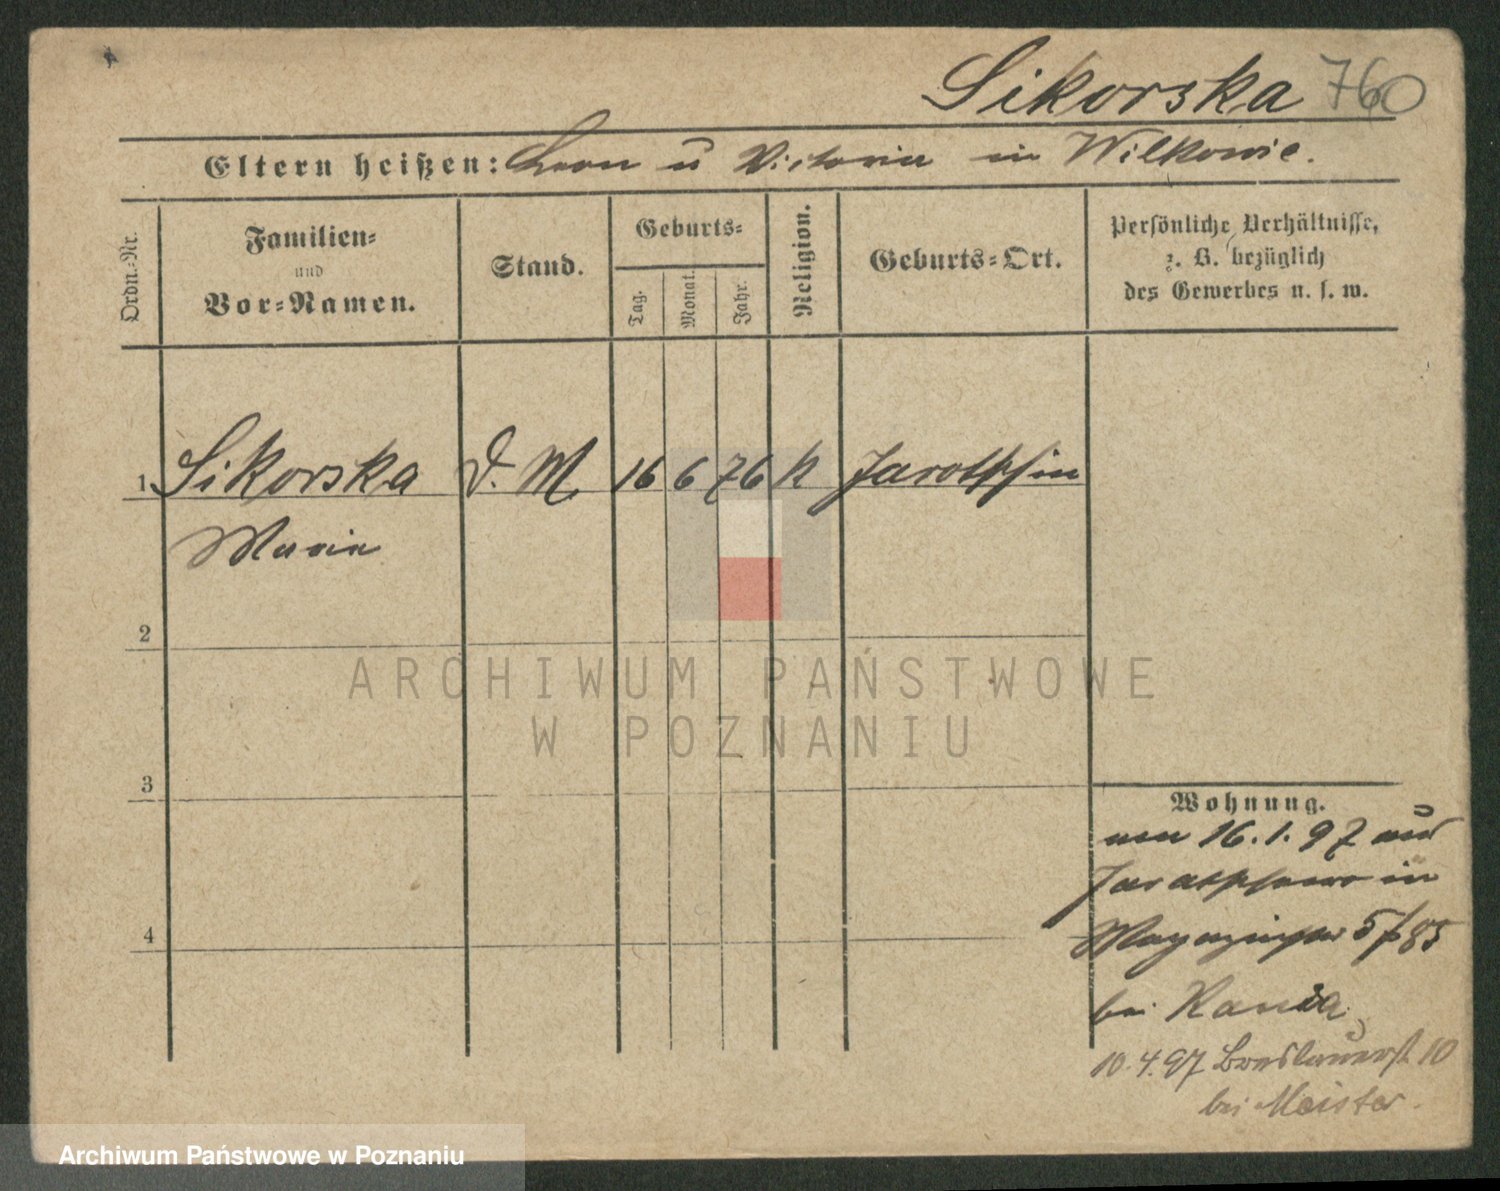 Sikorska 760
Eltern heißen: Leon u Victoria in Wilkowie.
Ordn.-Nr.
Familien-
und
Vor-Namen.
Stand.
Geburts-
Tag.
Monat.
Jahr.
Religion.
Geburts-Ort.
Persönliche Verhältnisse,
z. B. bezüglich
des Gewerbes u. s. w.
1 Sikorska D. M. 16 6 76 k Jarotschin
Marie
2
3
4
Wohnung.
von 16.1.97 aus
in
5/85
bei
10.4.97 Breslauerst. 10
bei Meister.
ARCHIWUM PAŃSTWOWE
W POZNANIU
Archiwum Państwowe w Poznaniu